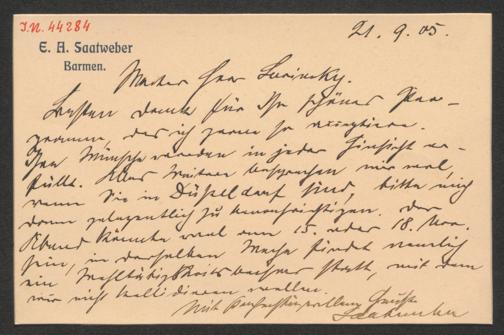 J.N. 44284
21. 9. 05.
E. A. Saatweber
Barmen.
Besten Dank für Ihr schönes Pro-
gramm, das ich gerne so acceptiere.
Ihre Wünsche werden in jeder Hinsicht er-
füllt. Alles Weitere besprechen wir mal,
wenn Sie in Düsseldorf sind, bitte mich
dann gelegentlich zu benachrichtigen. Der
Abend könnte mal am 15. oder 18. Nov.
sein, in derselben Woche findet nämlich
ein Wohltätigkeits statt, mit dem
wir nicht kollidieren wollen.
Mit
Saatweber